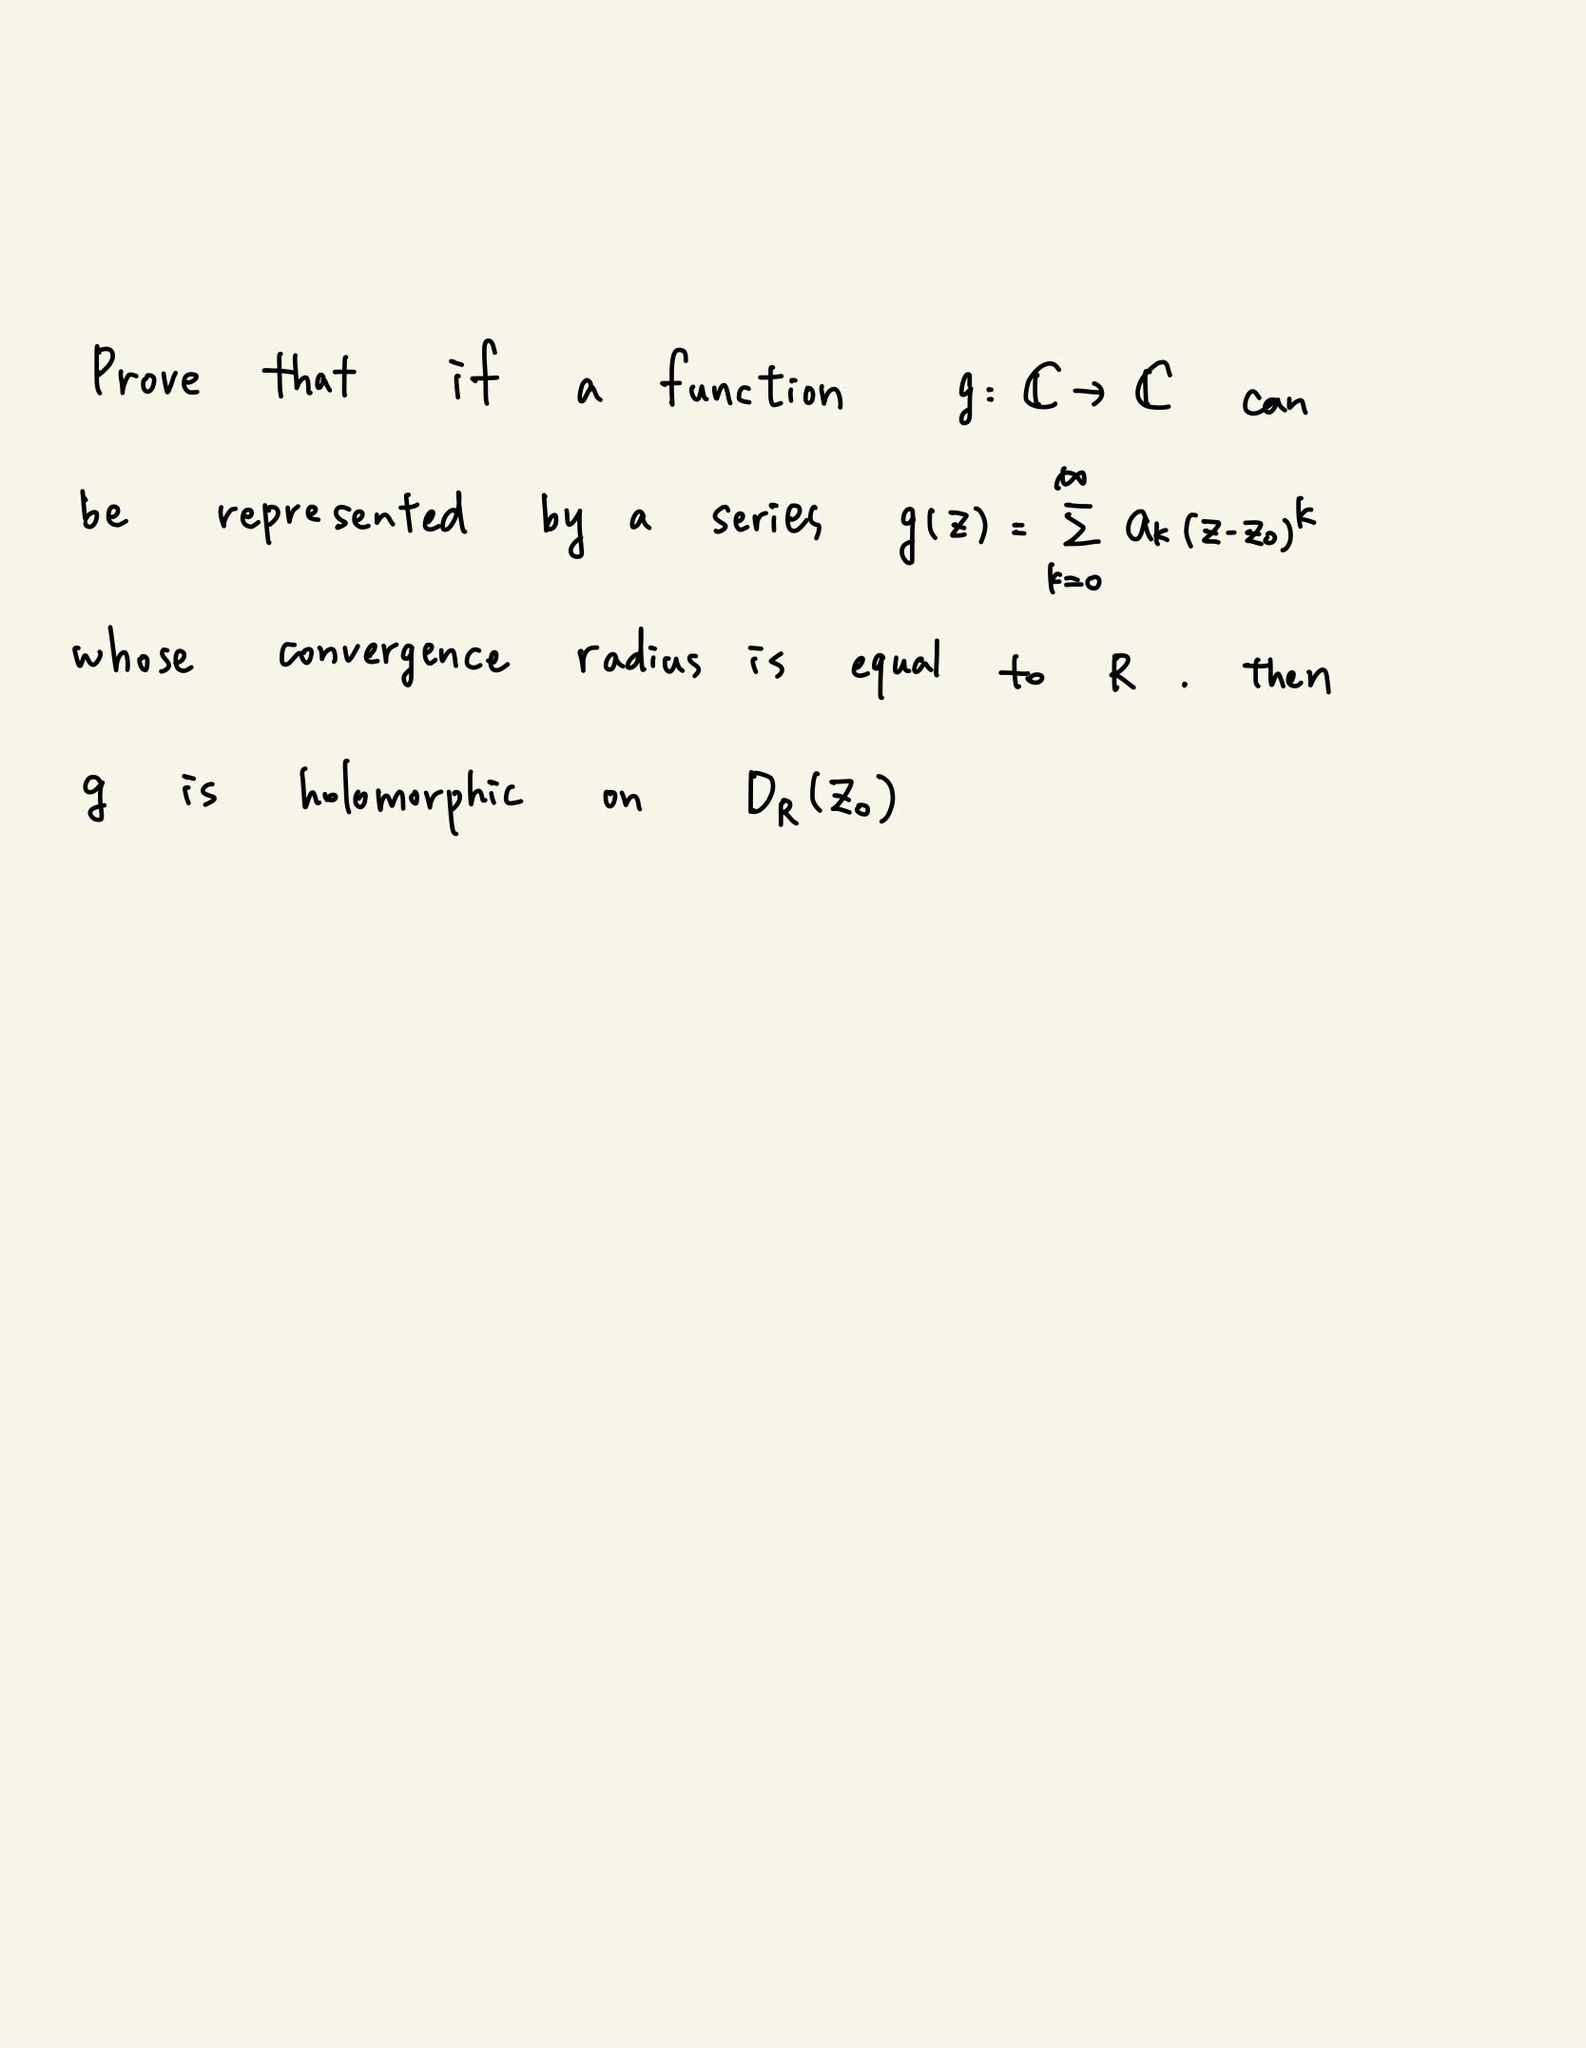 Prove that if a function g: ℂ → ℂ can
be represented by a series g(z) = ∑_{k=0}^{∞} a_k (z-z_0)^k
whose convergence radius is equal to R . then
g is holomorphic on D_R(z_0)